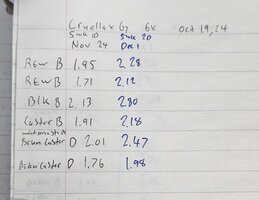 Cryoflax G7 6x Oct 19, 24
5wk 10 5wk 20
Nov 24 Dec 1
REW B 1.95 2.28
REW B 1.71 2.12
Blk B 2.13 2.80
Castor B 1.91 2.18
Born Castor D 2.01 2.47
Born Castor D 1.76 1.98